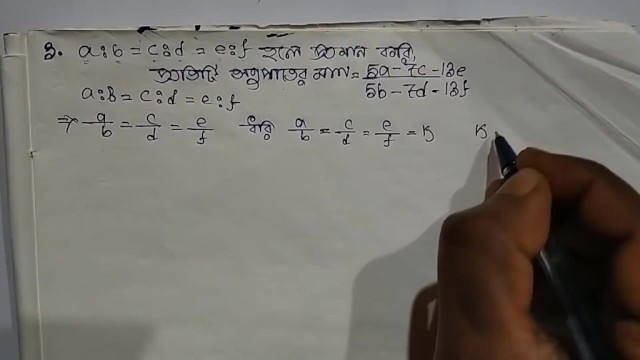 3. a:b = c:d = e:f হলে প্রমান করি,
প্রতিটি অনুপাতের মান = \frac{5a-7c-13e}{5b-7d-13f}
a:b = c:d = e:f
⇒ \frac{a}{b} = \frac{c}{d} = \frac{e}{f} ধরি \frac{a}{b} = \frac{c}{d} = \frac{e}{f} = K K